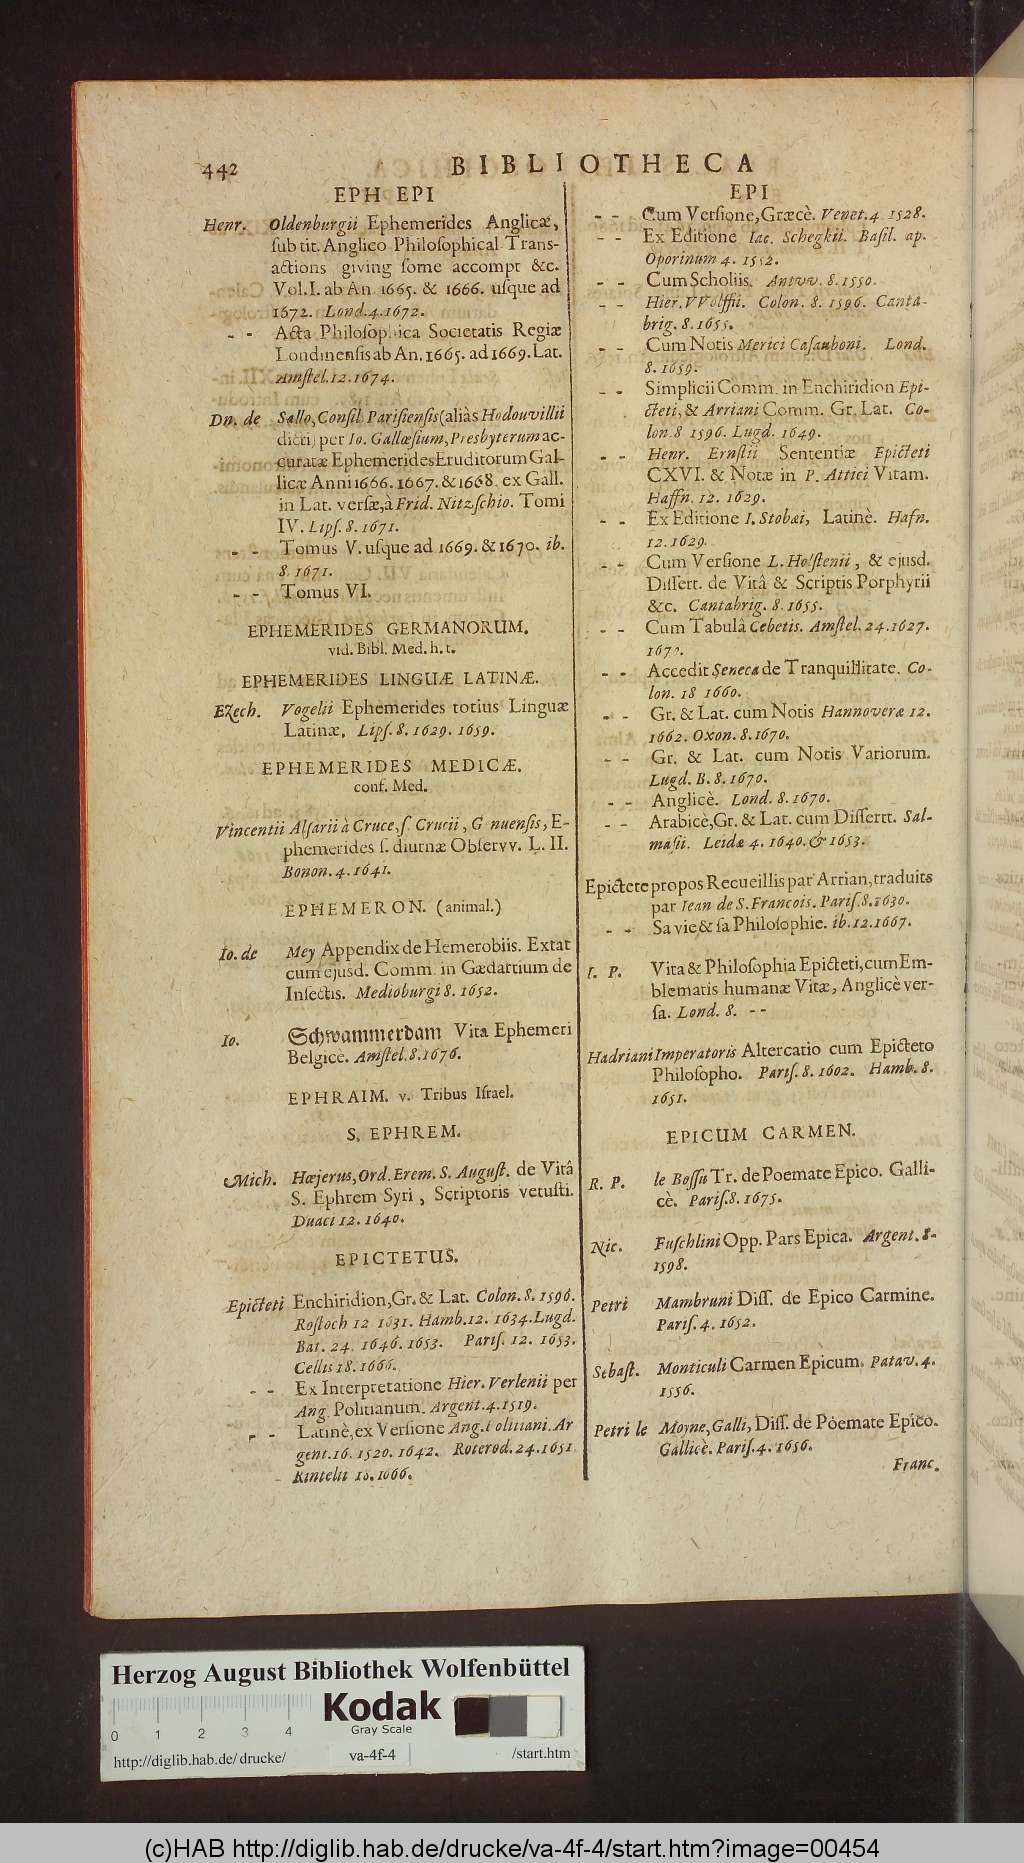 442
BIBLIOTHECA
EPH EPI
Henr. Oldenburgii Ephemerides Anglicæ,
ſub tit. Anglico Philoſophical Trans-
actions giving ſome accompt &c.
Vol. I. ab An. 1665. & 1666. uſque ad
1672. Lond. 4. 1672.
- - Acta Philoſophica Societatis Regiæ
Londinenſis ab An. 1665. ad 1669. Lat.
Amſtel. 12. 1674.
Dn. de Sallo, Conſil. Pariſienſis (aliàs Hodouvillii
dicti) per Io. Gallœſium, Presbyterum ac-
curatæ Ephemerides Eruditorum Gal-
licæ Anni 1666. 1667. & 1668. ex Gall.
in Lat. verſæ, à Frid. Nitzſchio. Tomi
IV. Lipſ. 8. 1671.
- - Tomus V. uſque ad 1669. & 1670. ib.
8. 1671.
- - Tomus VI.
EPHEMERIDES GERMANORUM.
vid. Bibl. Med. h. t.
EPHEMERIDES LINGUÆ LATINÆ.
Ezech. Vogelii Ephemerides totius Linguæ
Latinæ. Lipſ. 8. 1629. 1659.
EPHEMERIDES MEDICÆ.
conf. Med.
Vincentii Alſarii à Cruce, ſ. Crucii, Genuenſis, E-
phemerides ſ. diurnæ Obſervv. L. II.
Bonon. 4. 1641.
EPHEMERON. (animal.)
Io. de Mey Appendix de Hemerobiis. Extat
cum ejusd. Comm. in Gædartium de
Inſectis. Medioburgi 8. 1652.
Io. Schwammerdam Vita Ephemeri
Belgicè. Amſtel. 8. 1676.
EPHRAIM. v. Tribus Iſrael.
S. EPHREM.
Mich. Hœjerus, Ord. Erem. S. Auguſt. de Vitâ
S. Ephrem Syri, Scriptoris vetuſti.
Duaci 12. 1640.
EPICTETUS.
Epicteti Enchiridion, Gr. & Lat. Colon. 8. 1596.
Roſtoch 12 1631. Hamb. 12. 1634. Lugd.
Bat. 24. 1646. 1653. Pariſ. 12. 1653.
Cellis 18. 1666.
- - Ex Interpretatione Hier. Verlenii per
Ang. Politianum. Argent. 4. 1519.
- - Latinè, ex Verſione Ang. Politiani. Ar
gent. 16. 1520. 1642. Roterod. 24. 1651
- Rintelii 10. 1666.
EPI
- - Cum Verſione, Græcè. Venet. 4. 1528.
- - Ex Editione Iac. Schegkii. Baſil. ap.
Oporinum 4. 1552.
- - Cum Scholiis. Antvv. 8. 1550.
- - Hier. VVolffii. Colon. 8. 1596. Canta-
brig. 8. 1655.
- - Cum Notis Merici Caſauboni. Lond.
8. 1659.
- - Simplicii Comm. in Enchiridion Epi-
cteti, & Arriani Comm. Gr. Lat. Co-
lon. 8 1596. Lugd. 1649.
- - Henr. Ernſtii Sententiæ Epicteti
CXVI. & Notæ in P. Attici Vitam.
Haffn. 12. 1629.
- - Ex Editione I. Stobæi, Latinè. Hafn.
12. 1629.
- - Cum Verſione L. Holſtenii, & ejusd.
Diſſert. de Vitâ & Scriptis Porphyrii
&c. Cantabrig. 8. 1655.
- - Cum Tabulâ Cebetis. Amſtel. 24. 1627.
- - Accedit Seneca de Tranquillitate. Co-
lon. 18 1660.
- - Gr. & Lat. cum Notis Hannoveræ 12.
1662. Oxon. 8. 1670.
- - Gr. & Lat. cum Notis Variorum.
Lugd. B. 8. 1670.
- - Anglicè. Lond. 8. 1670.
- - Arabicè, Gr. & Lat. cum Diſſertt. Sal-
maſii. Leidæ 4. 1640. & 1653.
Epictete propos Recueillis par Arrian, traduits
par Iean de S. Francois. Pariſ. 8. 1630.
- - Sa vie & ſa Philoſophie. ib. 12. 1667.
I. P. Vita & Philoſophia Epicteti, cum Em-
blematis humanæ Vitæ, Anglicè ver-
ſa. Lond. 8. - -
Hadriani Imperatoris Altercatio cum Epicteto
Philoſopho. Pariſ. 8. 1602. Hamb. 8.
1651.
EPICUM CARMEN.
R. P. le Boſſu Tr. de Poemate Epico. Galli-
cè. Pariſ. 8. 1675.
Nic. Fuſchlini Opp. Pars Epica. Argent. 8.
1598.
Petri Mambruni Diſſ. de Epico Carmine.
Pariſ. 4. 1652.
Sebaſt. Monticuli Carmen Epicum. Patav. 4.
1556.
Petri le Moyne, Galli, Diſſ. de Poemate Epico.
Gallicè. Pariſ. 4. 1656.
Franc.
Herzog August Bibliothek Wolfenbüttel
Kodak
Gray Scale
0 1 2 3 4
http://diglib.hab.de/drucke/ va-4f-4 /start.htm
(c)HAB http://diglib.hab.de/drucke/va-4f-4/start.htm?image=00454